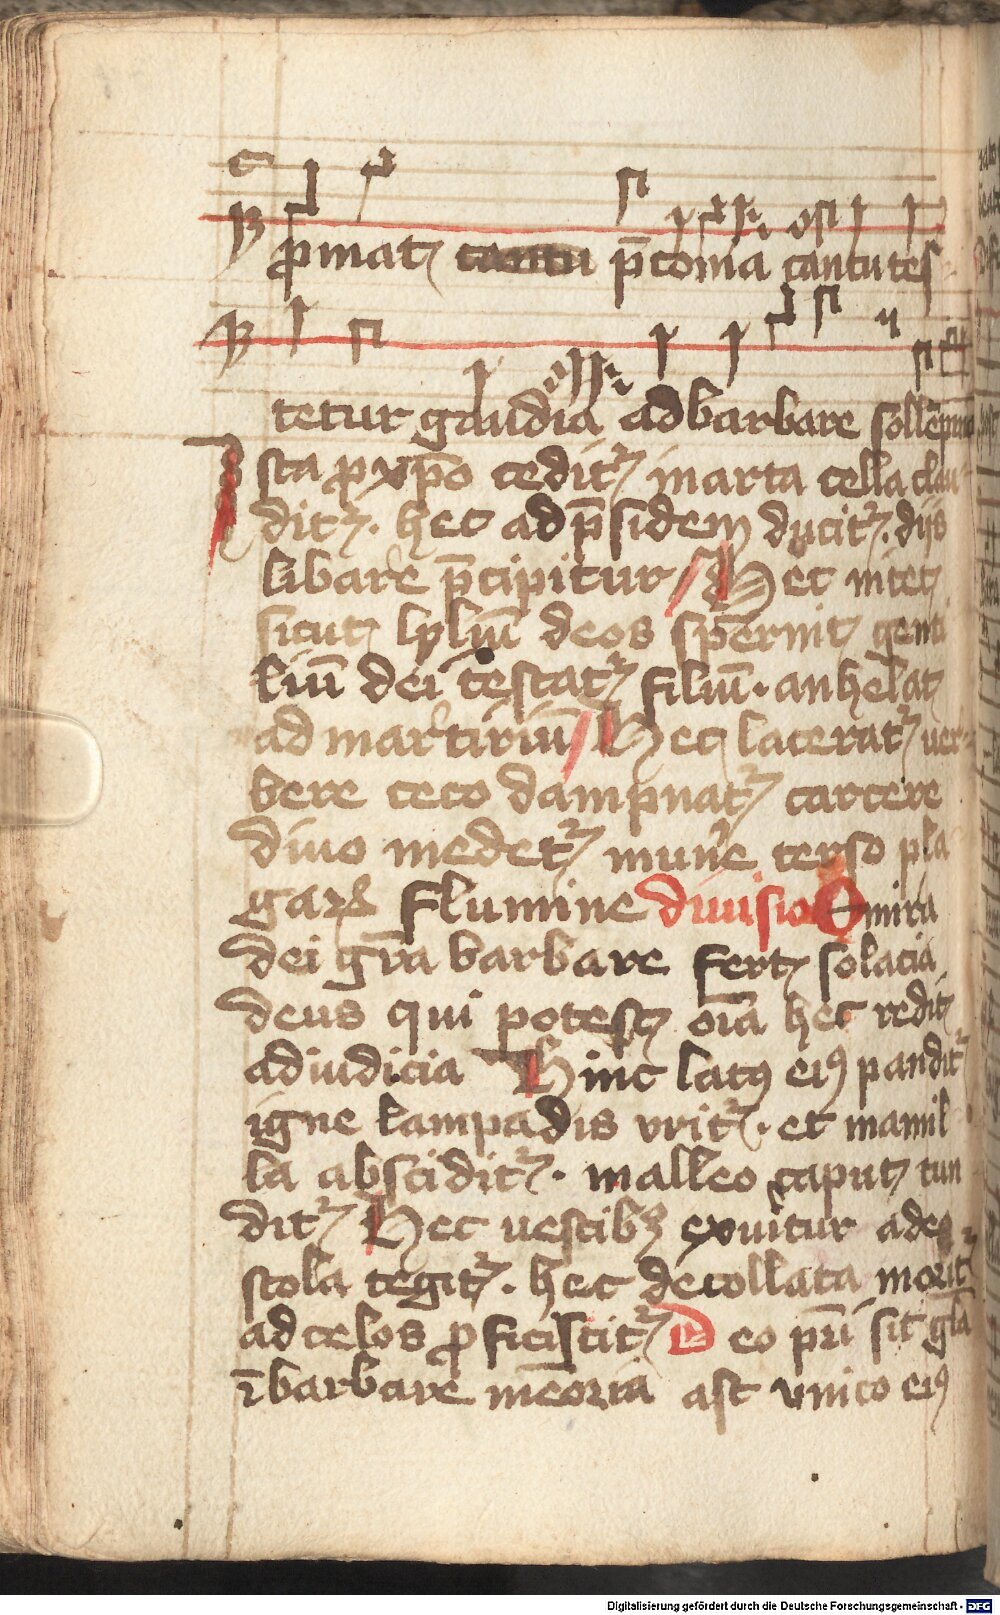 ꝓmat cantu p̄coma cantu tes
tetur gaudia ad barbare sollēpma
Ista ꝓ xp̄o cedit᷑ in arta cella clau
dit᷑. hec ad p̄sidem ducit᷑. dijs
libare p̄cipitur Hec nitet
sicut lyliū deos spernit genti
liū dei testat᷑ filiū. anhelat
ad martiriū Hec lacerat᷑ uer
bere ceco dampnat᷑ carcere
diuo medet᷑ mun̄e terso pla
gaꝝ flumine diuisio O mira
dei gr̄a barbare fert solacia
deus qui potest oīa hec redit
ad iudicia Hinc latꝰ eiꝰ pandit᷑
igne lampadis vrit᷑. et mamil
la abscidit᷑. malleo caput tun
dit᷑ Hec uestibꝫ exuitur adeo
stola tegit᷑. hec decollata morit᷑
ad celos ꝓficiscit᷑ Deo pr̄i sit gl̄a
ī barbare mēoria ast vnico eiꝰ
Digitalisierung gefördert durch die Deutsche Forschungsgemeinschaft - DFG